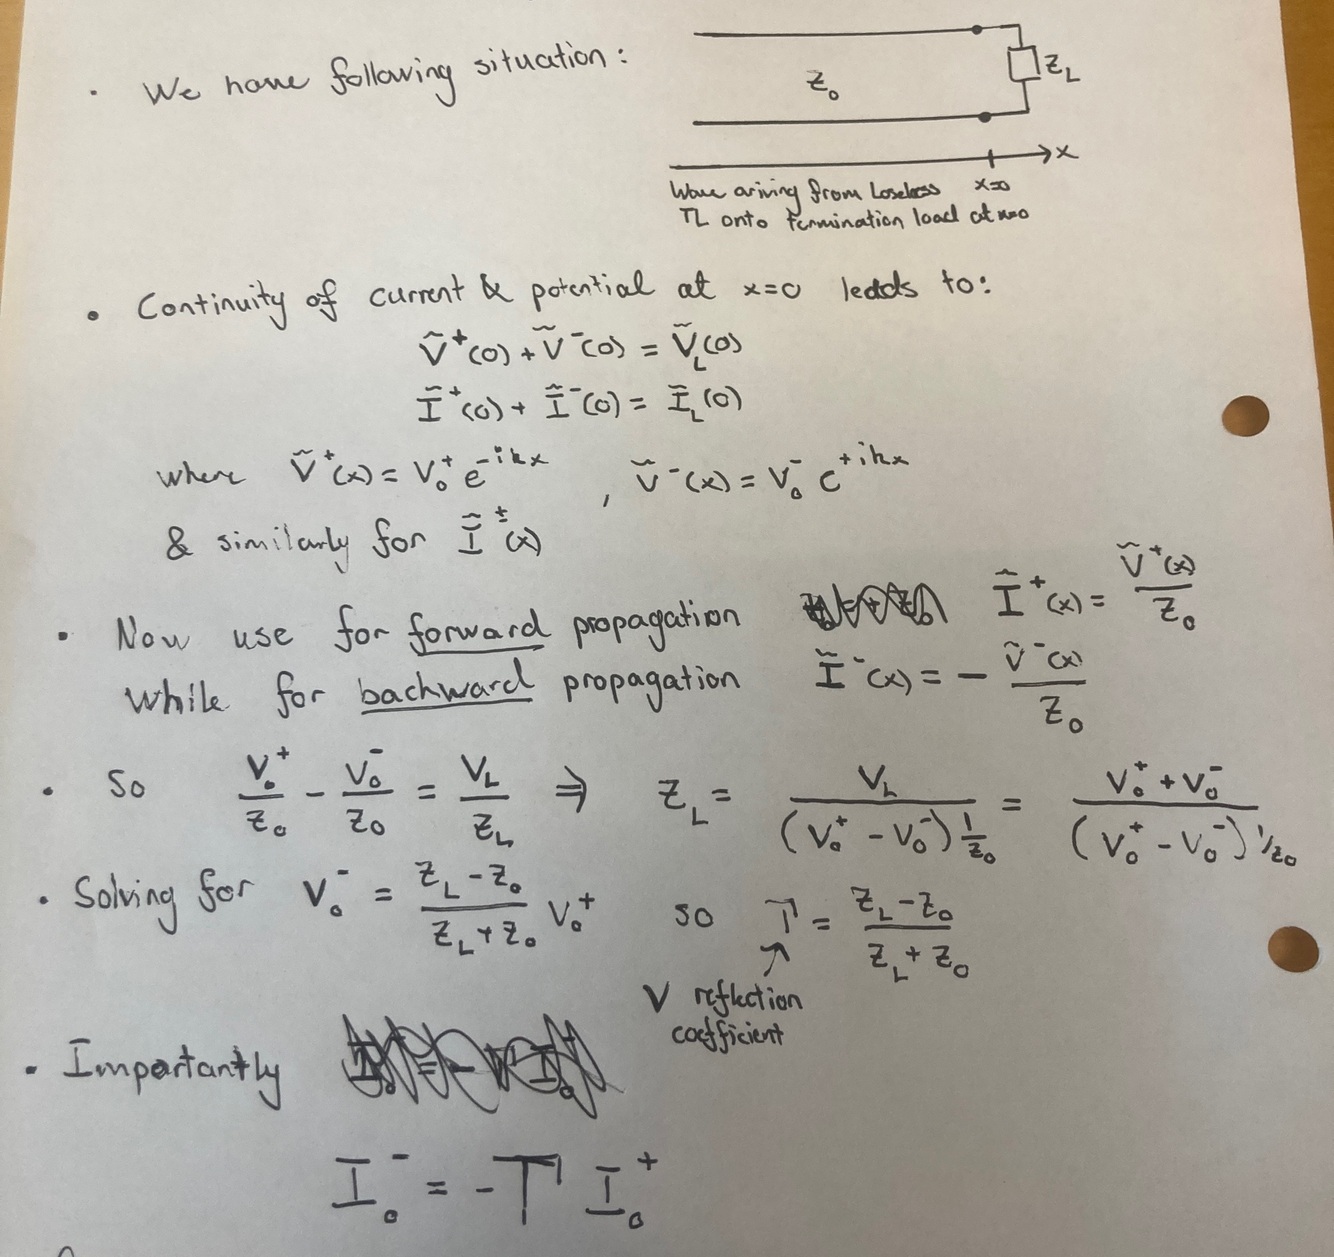 • We have following situation:
Z₀
Z_L
x
x=0
Wave ariving from Loseless
TL onto termination load at x=0
• Continuity of current & potential at x=0 leads to:
Ṽ⁺(0) + Ṽ⁻(0) = Ṽ_L(0)
Ĩ⁺(0) + Ĩ⁻(0) = Ĩ_L(0)
where Ṽ⁺(x) = V₀⁺ e^{-ikx} , Ṽ⁻(x) = V₀⁻ e^{+ikx}
& similarly for Ĩ^±(x)
• Now use for forward propagation Ĩ⁺(x) = Ṽ⁺(x)/Z₀
While for backward propagation Ĩ⁻(x) = - Ṽ⁻(x)/Z₀
• So V₀⁺/Z₀ - V₀⁻/Z₀ = V_L/Z_L ⇒ Z_L = V_L/((V₀⁺ - V₀⁻) 1/Z₀) = (V₀⁺ + V₀⁻)/((V₀⁺ - V₀⁻) 1/Z₀)
• Solving for V₀⁻ = (Z_L - Z₀)/(Z_L + Z₀) V₀⁺ so Γ = (Z_L - Z₀)/(Z_L + Z₀)
V reflection
coefficient
• Importantly
I₀⁻ = -Γ I₀⁺